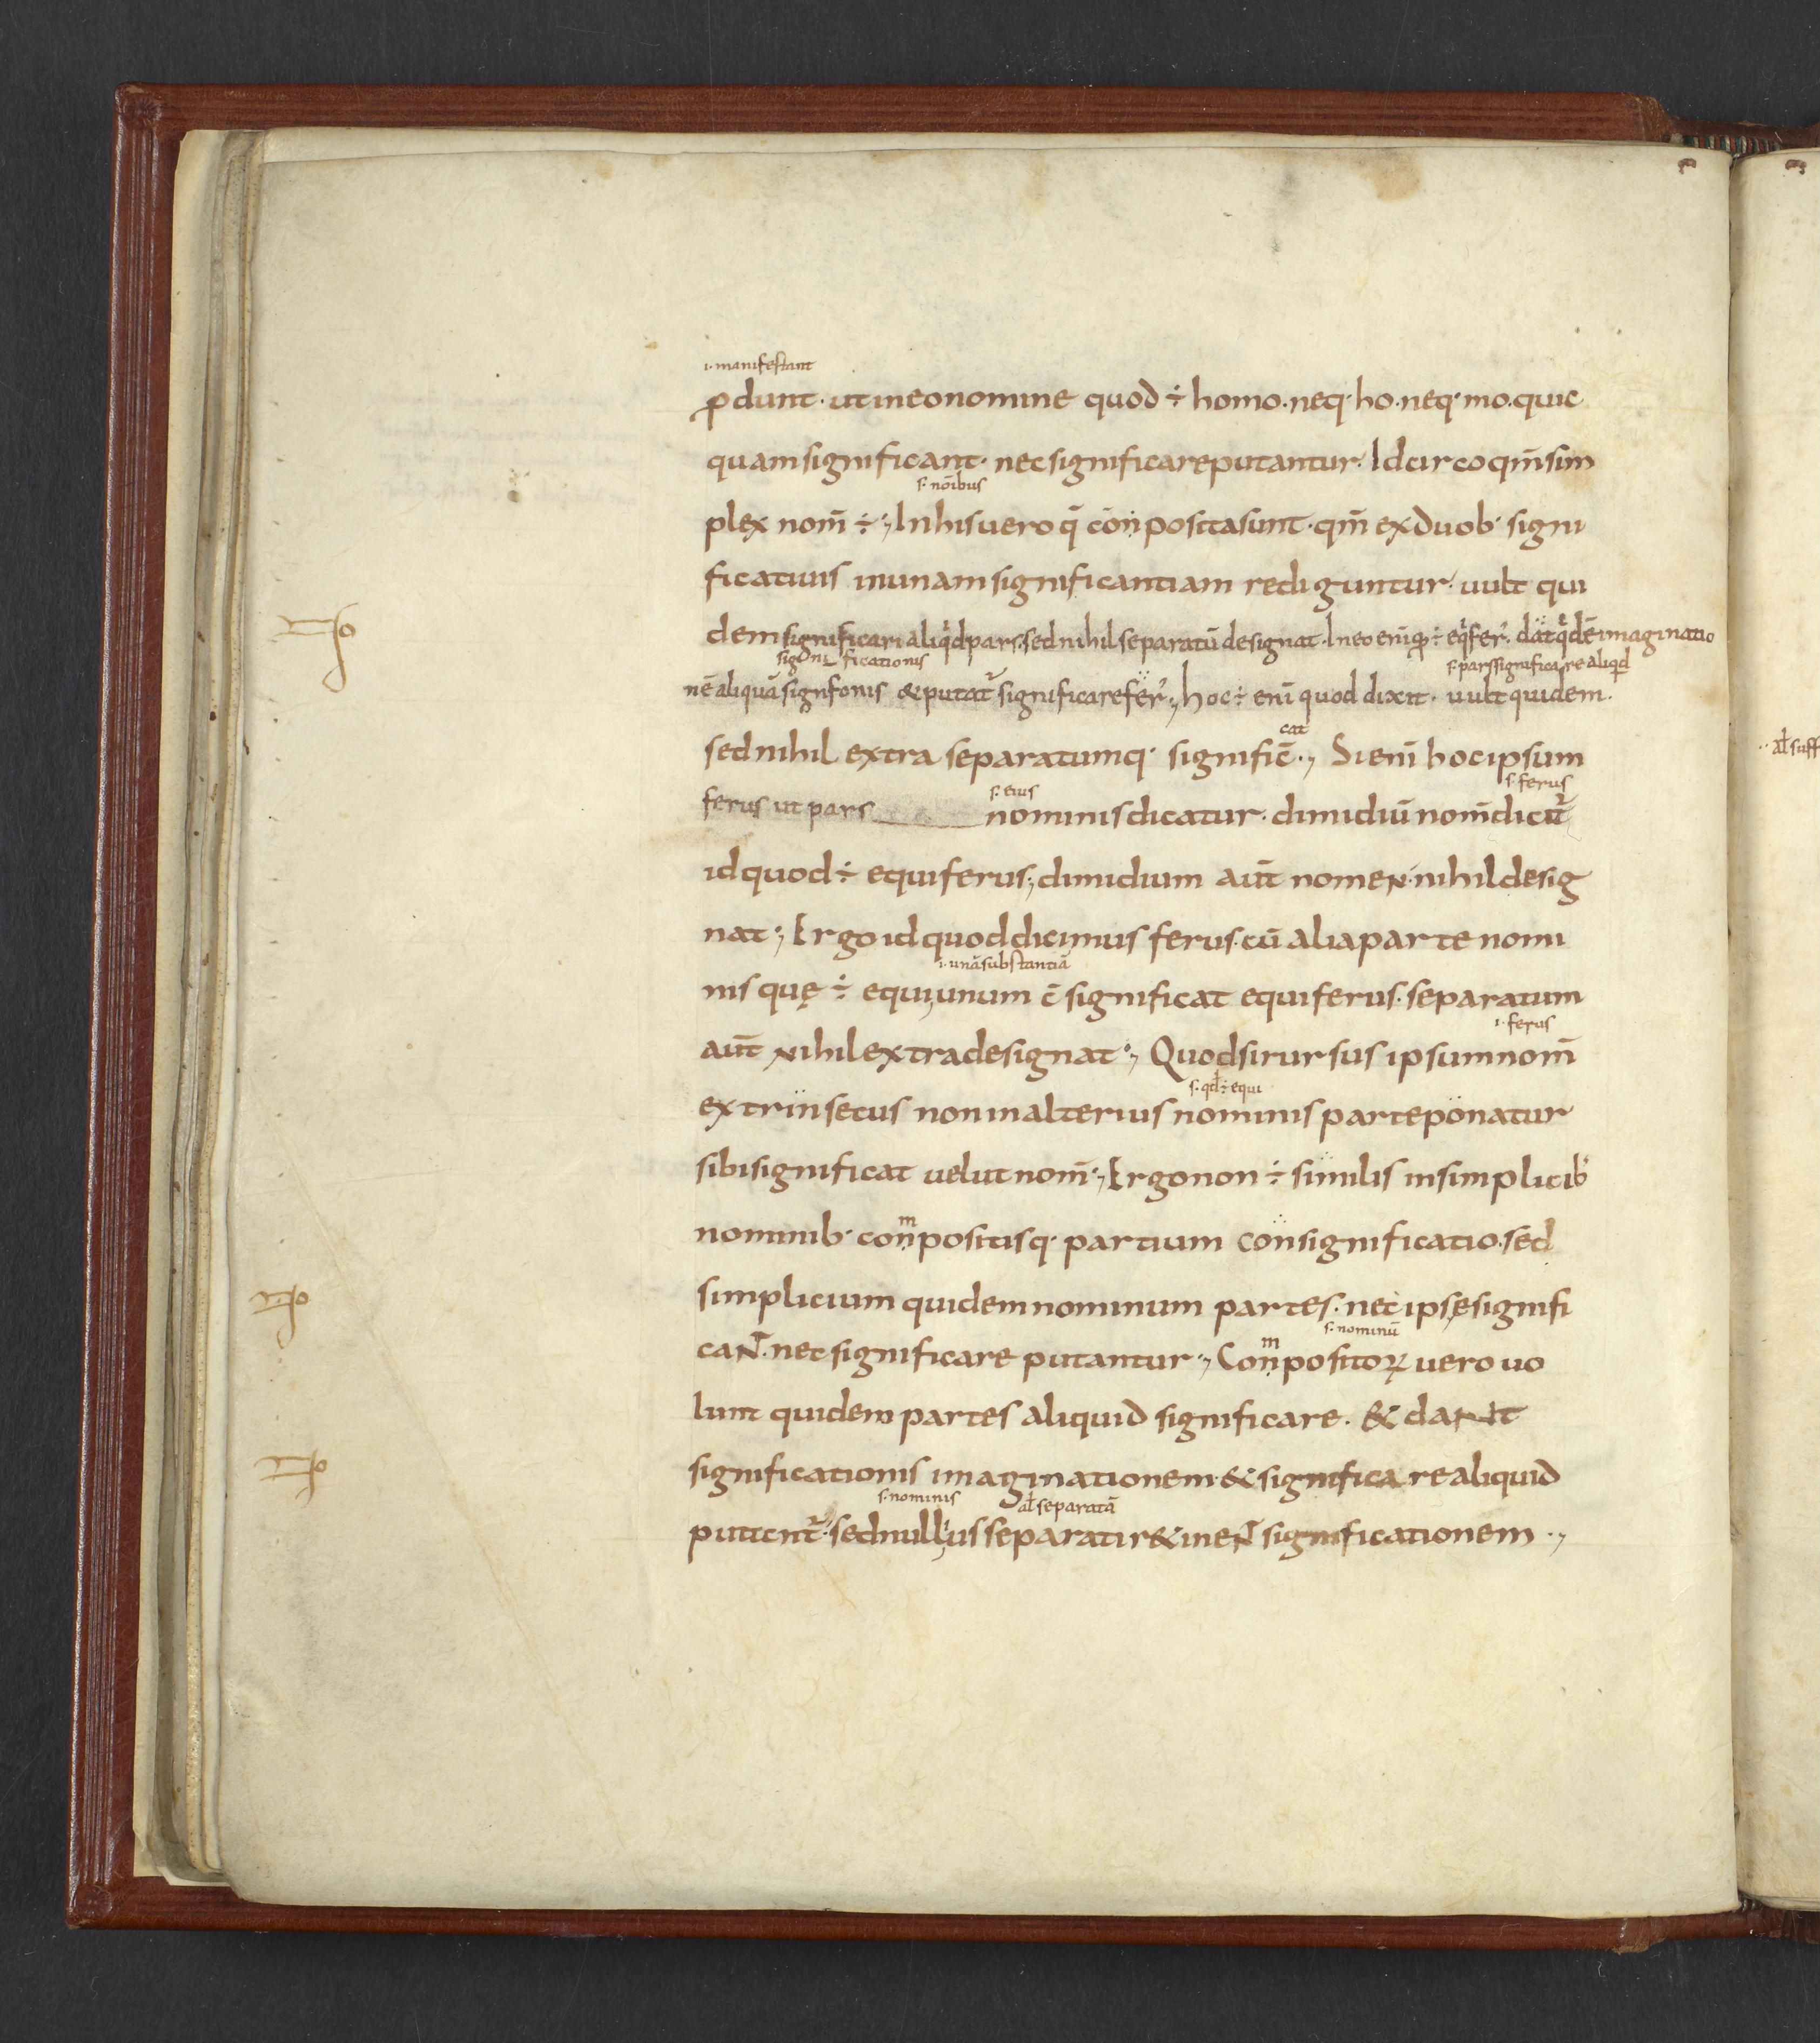 .i. manifestant
ꝓdunt· ut in eo nomine quod ÷ homo· neq· ho· neq· mo· quic
quam significant· nec significare putantur· Idcirco qm̄ sim
s. noībus
plex nom̄ ÷ ·, In his uero q̄ conposita sunt· qm̄ ex duob· signi
ficatiuis in unam significantiam rediguntur· uult qui
dem significari aliqͥd pars· sed nihil separatū designat· In eo enī qd ÷ eqͥfer᾽· dat qͥdē imaginatio
significationis s. pars significare aliqd
nē aliquā signifonis & putat᷑ significare fer᾽·, hoc ÷ enī quod dixit· uult quidem·
cat
sed nihil extra separatumq· significͨ·, Si enī hoc ipsum
s. eius s. ferus
ferus ut pars nominis dicatur· dimidiū nom̄ dicit᷑
id quod ÷ equiferus; dimidium aūt nomen· nihil desig
nat·, Ergo id quod dicimus ferus· cū alia parte nomi
.i. unā substantiā
nis quę ÷ equi, unum c̄significat equiferus· separatum
.i. ferus
aūt nihil extra designat·, Quod si rursus ipsum nom̄
s. qd ÷ equi
extrinsecus non in alterius nominis parte ponatur
sibi significat uelut nom̄·, Ergo non ÷ similis in simplicib·
m
nominib· conpositisq· partium consignificatio· sed
simplicium quidem nominum partes· nec ipsę signifi
m s. nominū
cant· nec significare putantur·, Conpositoꝝ uero uo
lunt quidem partes aliquid significare· & dant
significationis imaginationem· & significare aliquid
s. nominis ał separatā
putent᷑· sed nullius separati r&inent significationem·,
ał suff